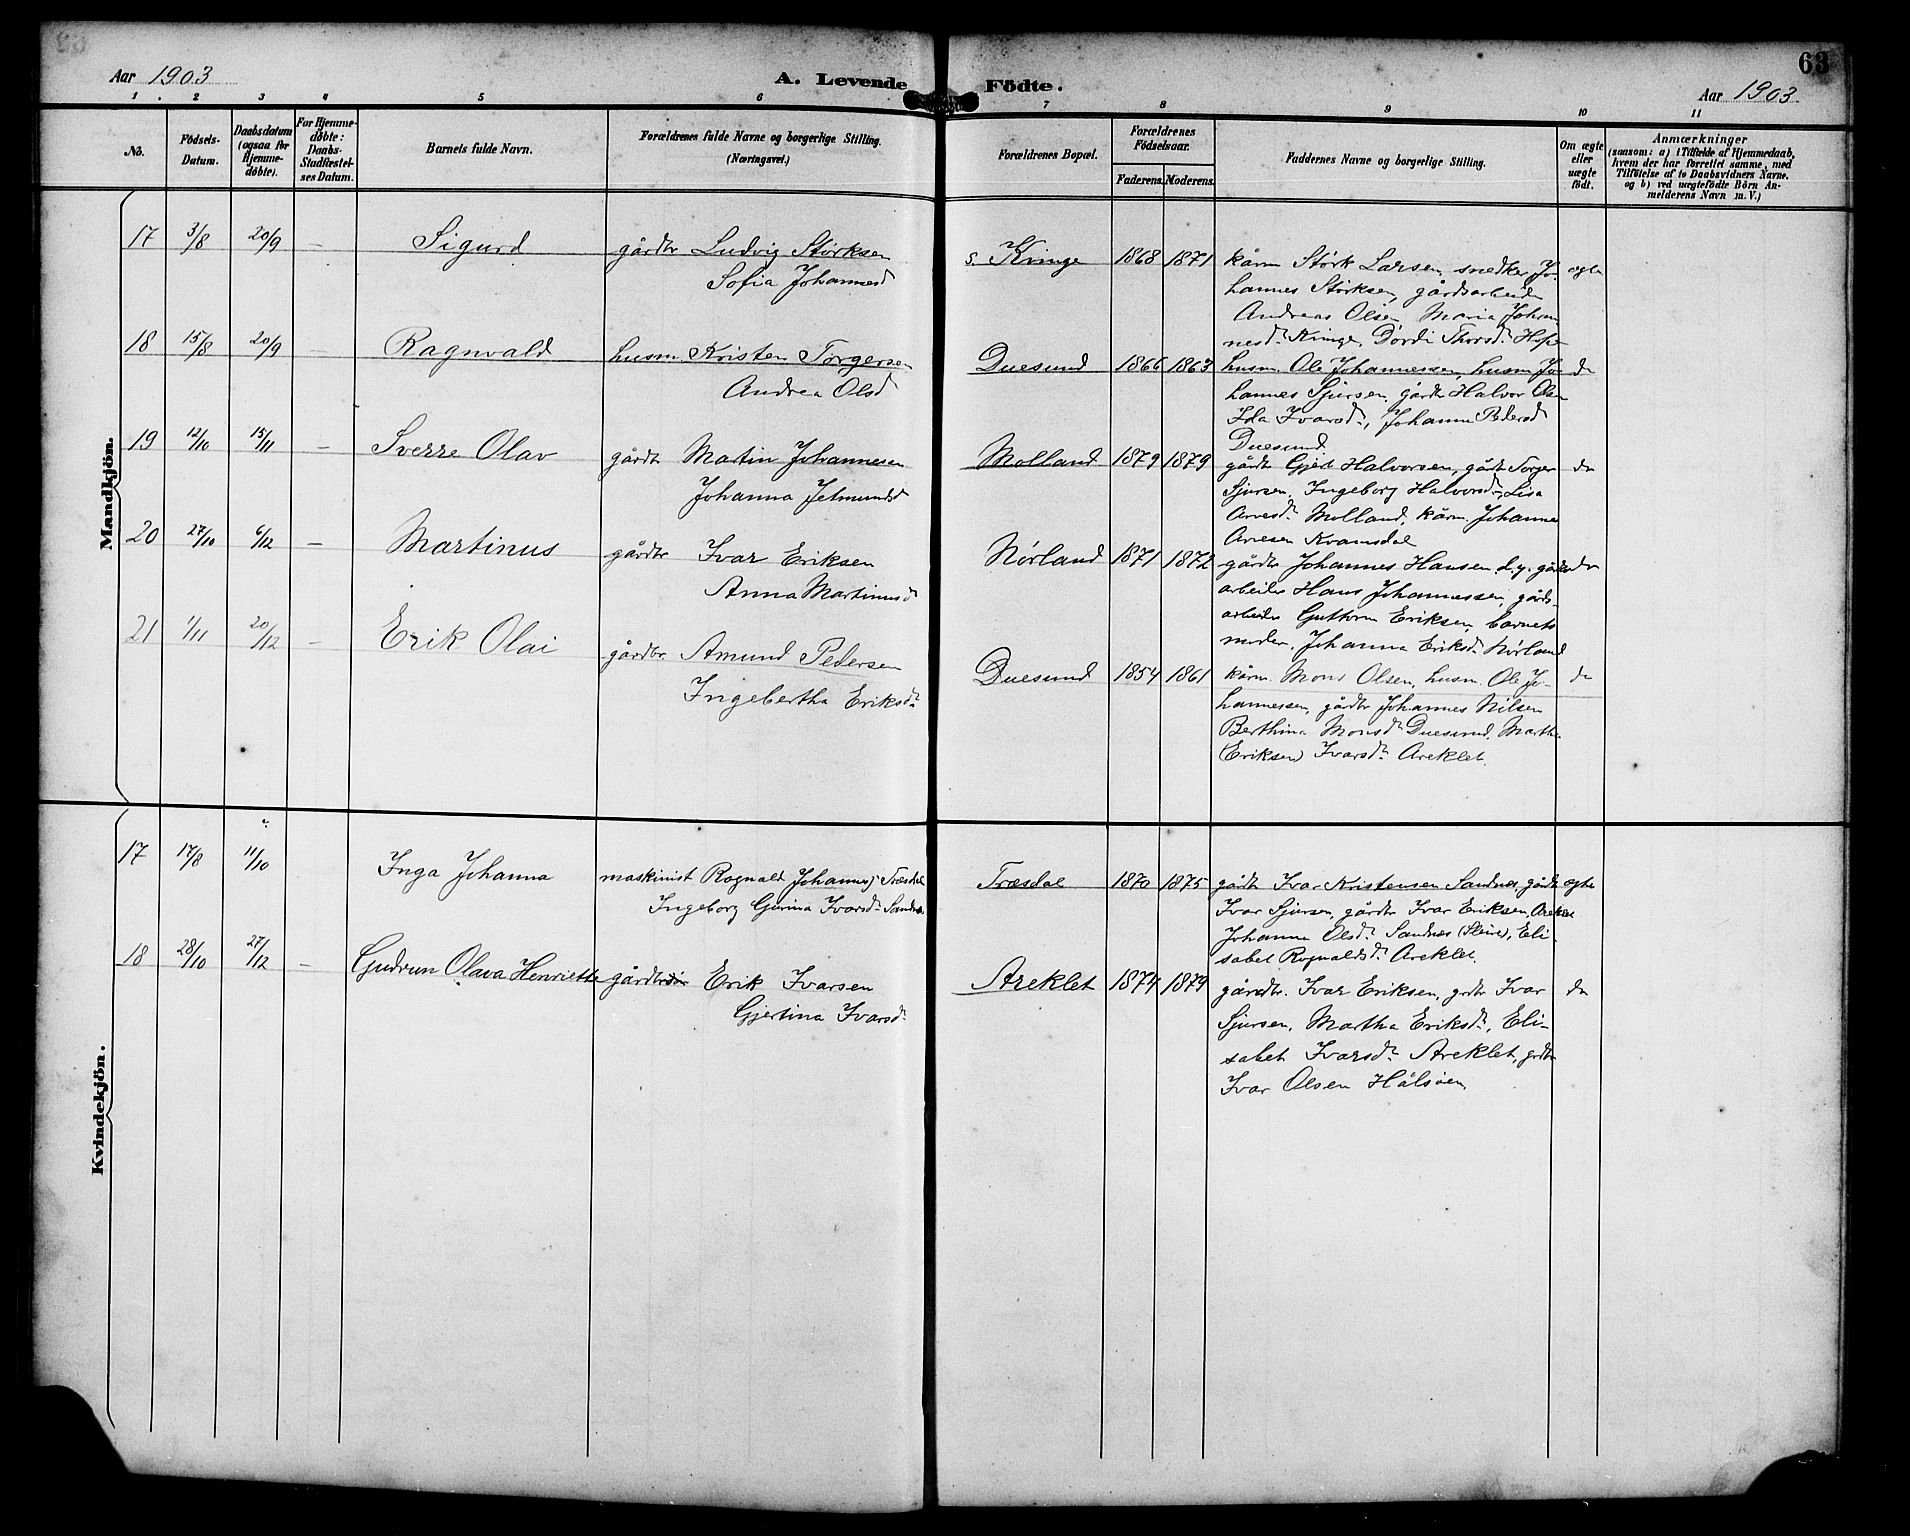 63
Aar 1903
A. Levende Födte.
Aar 1903.
1. 2 3 4 5 6 7 8 9 10 11
No.
Födsels-Datum.
Daabsdatum (ogsaa for Hjemme-döbte).
For Hjemme-döbte: Daabs-Stadfæstel-ses Datum.
Barnets fulde Navn.
Forældrenes fulde Navne og borgerlige Stilling. (Næringsvei.)
Forældrenes Bopæl.
Forældrenes Födselsaar.
Faderens. Moderens.
Faddernes Navne og borgerlige Stilling.
Om ægte eller uægte födt.
Anmærkninger
(saasom: a) i Tilfælde af Hjemmedaab,
hvem der har forrettet samme, med
Tilföielse af to Daabsvidners Navne,
og b) ved uægtefödte Börn An-
melderens Navn m. V.)
Mandkjön.
17 3/8 20/9 — Sigurd gårdbr Ludvig Størksen
Sofia Johannesd
s. Kvinge 1868 1871 kårm Størk Larsen, snedker Jo- ægte
hannes Størksen, gårdsarbeider
Andreas Olsen Maria Johan
nesd. Kvinge, Dordi Thorsd. Hope
18 15/8 20/9 — Ragnvald husm. Kristen Torgersen
Andrea Olsd
Duesund 1866 1863 husm. Ole Johannessen, husm Jo- do
hannes Sjursen, gårdbr Halvor Olsen
Ida Ivarsd., Johanne Pedersd
Duesund
19 12/10 15/11 — Sverre Olav gårdbr Martin Johannesen
Johanna Jetmundsd
Molland 1879 1879 gårdbr Gjert Halvorsen, gårdbr Torger do
Sjursen, Ingeborg Halvorsd., Lisa
Arnesd. Molland, kårm. Johannes
Arnesen Kvamsdal
20 27/10 6/12 — Martinus gårdbr Ivar Eriksen
Anna Martinusd
Nørland 1871 1872 gårdbr Johannes Hansen d. y. gårds do
arbeider Hans Johannessen, gårds-
arbeider Guttorm Eriksen, barnets
moder, Johanna Eriksd. Nørland
21 1/11 20/12 — Erik Olai gårdbr. Amund Pedersen
Ingebertha Eriksd.
Duesund 1854 1861 kårm. Mons Olsen, husm. Ole Jo- do
hannessen, gårdbr Johannes Nilsen
Berthina Monsd. Duesund, Martha
(Eriksen) Ivarsd. Areklet.
Kvindekjön.
17 17/8 11/10 Inga Johanna maskinist Rognald Johannes. Træsdal
Ingeborg Gurina Ivarsd. Sandnes
Træsdal 1870 1875 gårdbr Ivar Kristensen Sandnes, gårdbr ægte
Ivar Sjursen, gårdbr Ivar Eriksen, Areklet
Johanne Olsd. Sandnæs (Sleire), Eli-
sabet Rognaldsd. Areklet.
18 28/10 27/12 — Gudrun Olava Henriette gårdbrsøn Erik Ivarsen
Gjertina Ivarsd.
Areklet 1874 1879 gårdbr. Ivar Eriksen, grdbr Ivar do
Sjursen, Martha Eriksd., Eli-
sabet Ivarsd. Areklet, grdbr
Ivar Olsen Hålsøen